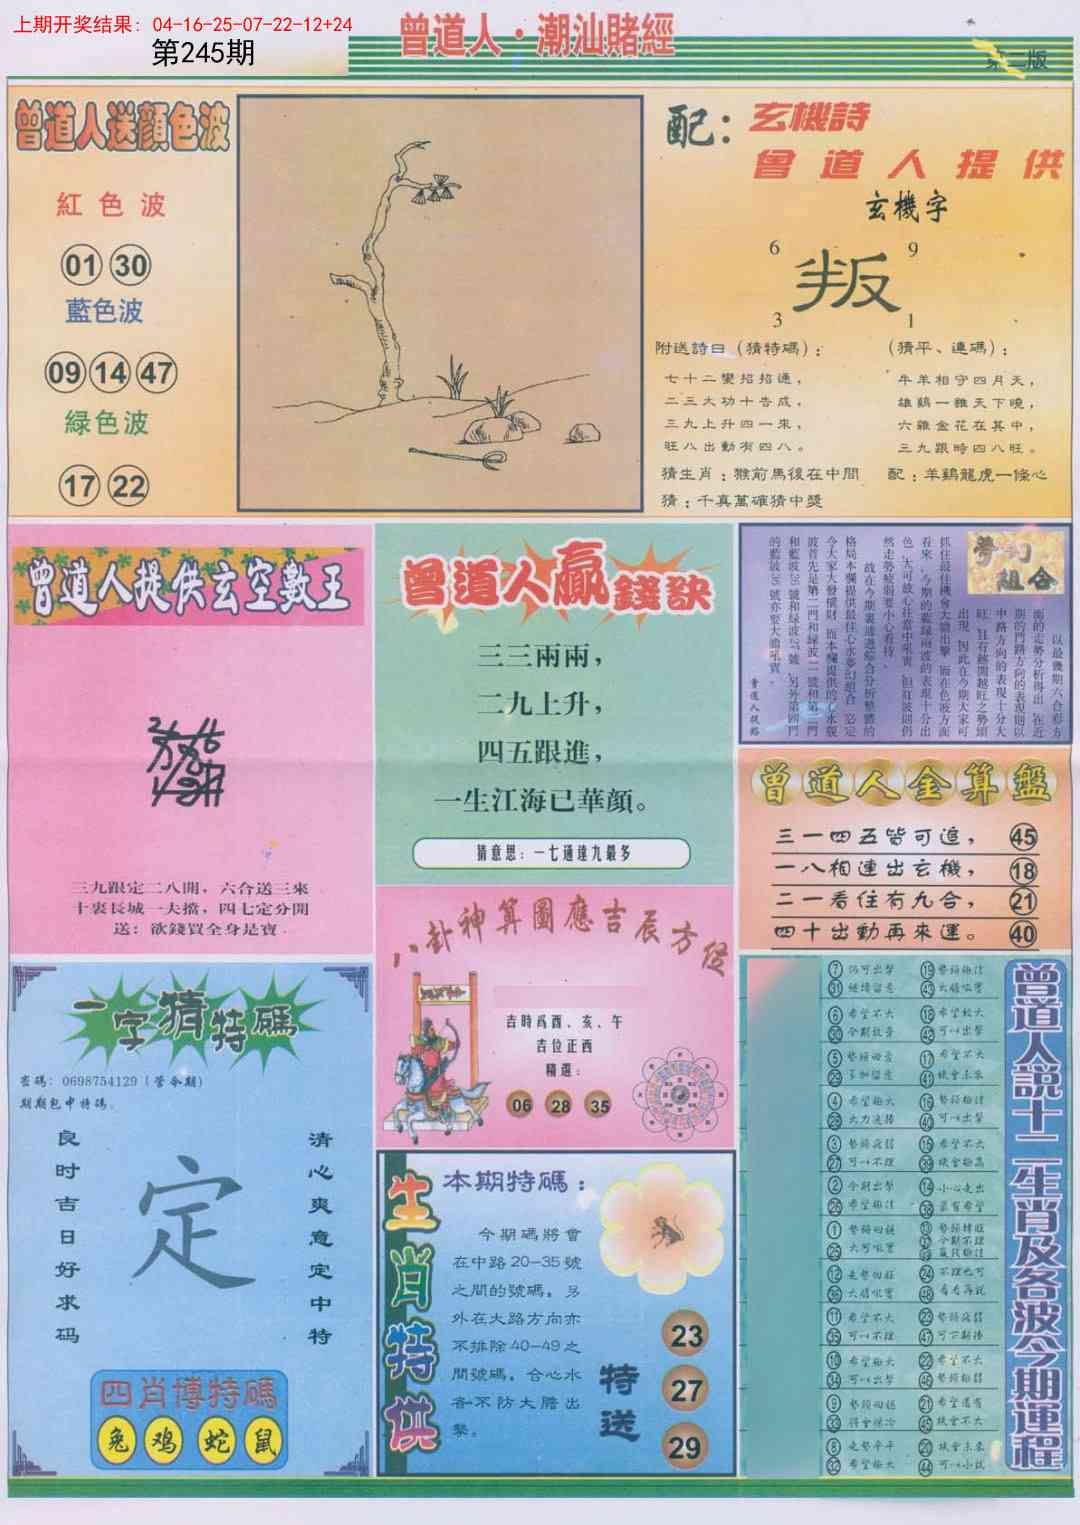 上期开奖结果：04-16-25-07-22-12+24
第245期
曾道人·潮汕賭經
第二版
曾道人送顔色波
紅色波
01 30
藍色波
09 14 47
緑色波
17 22
配：玄機詩
曾道人提供
玄機字
6 9
叛
3 1
附送詩曰（猜特碼）：
七十二變招招通，
二三大功十告成，
三九上升四一來，
旺八出動有四八。
猜生肖：猴前馬後在中間
猜：千真萬確猜中獎
（猜平、連碼）：
牛羊相守四月天，
雄鷄一雞天下曉，
六雞金花在其中，
三九跟時四八旺。
配：羊鷄龍虎一條心
曾道人提供玄空數王
三九跟定二八開，六合送三來
十裏長城一夫擋，四七定分開
送：欲錢買全身是寶
曾道人贏錢訣
三三兩兩，
二九上升，
四五跟進，
一生江海已華顔。
猜意思：一七通達九最多
夢幻組合
以最幾期六合彩方
面的走勢分析得出，在近
期的門路方向的表現則以
中路方向的表現十分大
旺，且有越開越旺之勢頭
出現，因此在今期大家可
抓住最佳機會大膽出擊，而在色波方面
看來，今期的藍緑兩波的表現十分出
色，大可放心在當中吼實，但紅波則仍
然走勢疲弱要小心看待。
故在今期裏通過綜合分析整體的
格局本欄提供最佳心水夢幻組合，必定
令大家大發橫財，而本欄提供的心水靚
波首先是第二門和緑波11號和第三門
和藍波25號和緑波27號，另外第四門
的藍波36號亦要大膽吼實。
曾道人說路
曾道人金算盤
三一四五皆可追， 45
一八相連出玄機， 18
二一看住有九合， 21
四十出動再來運。 40
八卦神算圖應吉辰方位
吉時爲酉、亥、午
吉位正西
精選：
06 28 35
一字猜特碼
密碼：0698754129（管今期）
期期包中特碼。
良时吉日好求码
定
清心爽意定中特
四肖博特碼
兔 鸡 蛇 鼠
生肖特供
本期特碼：
今期碼將會
在中路20-35號
之間的號碼，另
外在大路方向亦
不排除40-49之
間號碼，合心水
者不防大膽出
擊。
特送
23
27
29
曾道人説十二生肖及各波今期運程
⑦ 仍可出擊 ⑲ 勢頭極佳
㉛ 繼續留意 ㊸ 大膽吼實
⑥ 希望不大 ⑱ 希望較大
㉚ 今期放棄 ㊷ 可以出擊
⑤ 勢頭回查 ⑰ 希望不大
㉙ 多加留意 ㊶ 機會未來
④ 希望極大 ⑯ 勢頭極佳
㉘ 大力追捧 ㊵ 可以出擊
③ 勢頭疲弱 ⑮ 希望不大
㉗ 可以不理 ㊴ 機會極高
② 今期出擊 ⑭ 小心走出
㉖ 希望極佳 ㊳ 最有希望
① 勢頭回穩 ⑬ 勢頭轉旺
㉕ 大可吼實 ㊲ 今期不理
⑫ 走勢回旺 ㉔ 不理也可
㊱ 大膽吼實 ㊽ 看看再説
⑪ 希望不大 ㉓ 勢頭疲弱
㉟ 可以不理 ㊼ 可下期捧
⑩ 希望極大 ㉒ 希望不大
㉞ 可以出擊 ㊻ 勢頭極弱
⑨ 勢頭回穩 ㉑ 希望還有
㉝ 得會爆冷 ㊺ 機會不大
⑧ 走勢平平 ⑳ 機會未來
㉜ 希望極大 ㊹ 可以小試